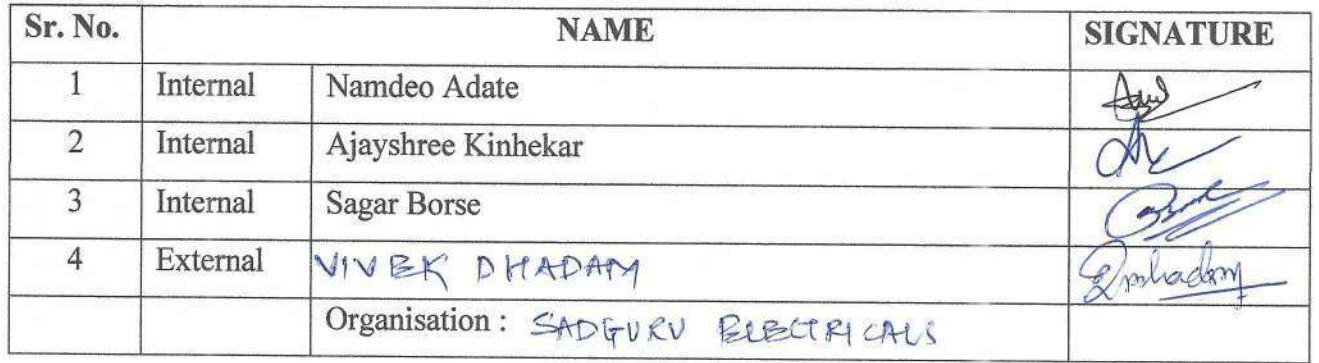 Sr. No. NAME SIGNATURE
1 Internal Namdeo Adate
2 Internal Ajayshree Kinhekar
3 Internal Sagar Borse
4 External VIVEK DHADAM
Organisation : SADGURU ELECTRICALS